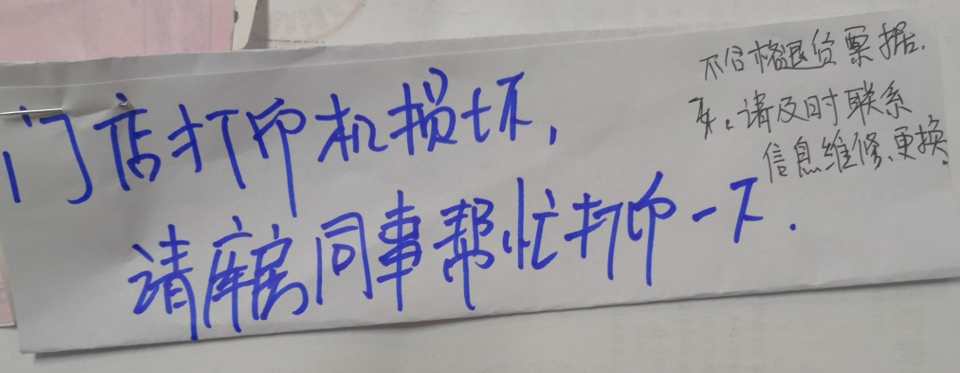 门店打印机损坏，
请库房同事帮忙打印一下.
不合格退货票据.
请及时联系
信息维修、更换.